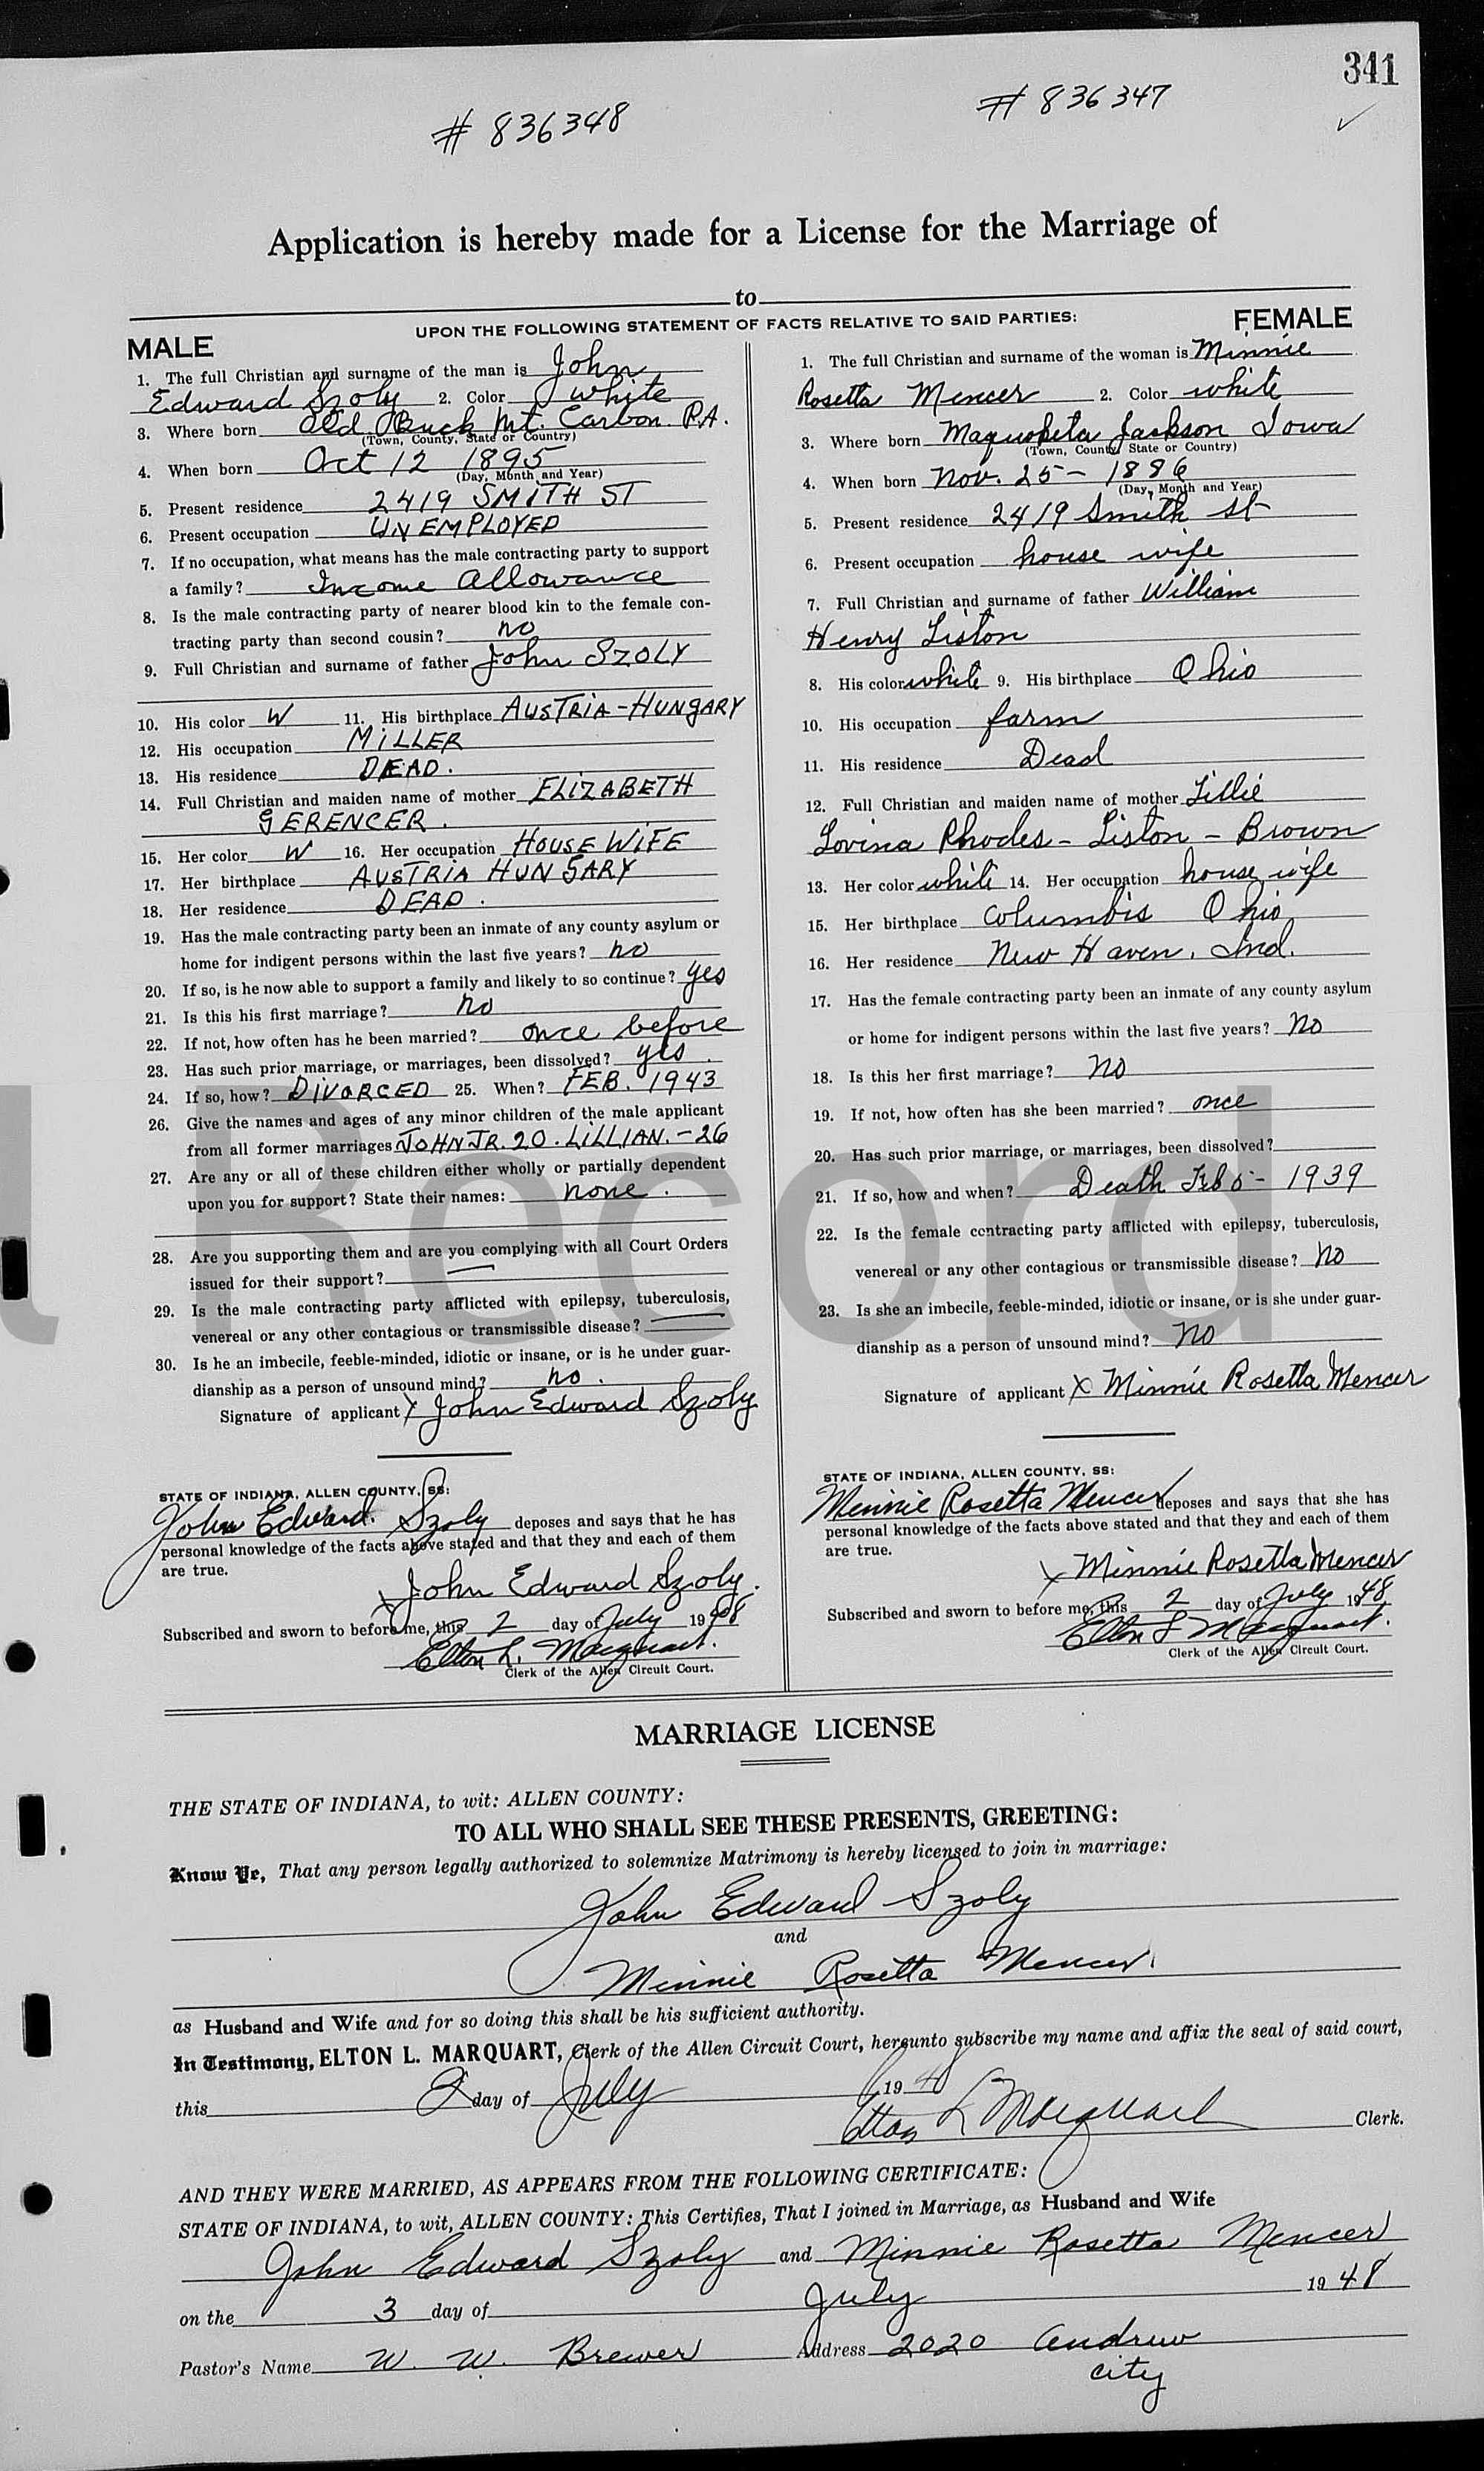 341
# 836348
# 836347
Application is hereby made for a License for the Marriage of
to
UPON THE FOLLOWING STATEMENT OF FACTS RELATIVE TO SAID PARTIES:
MALE
1. The full Christian and surname of the man is John
Edward Szoly 2. Color white
3. Where born Old Buck Mt. Carbon. PA.
(Town, County, State or Country)
4. When born Oct 12 1895
(Day, Month and Year)
5. Present residence 2419 SMITH ST
6. Present occupation UNEMPLOYED
7. If no occupation, what means has the male contracting party to support
a family? Income Allowance
8. Is the male contracting party of nearer blood kin to the female con-
tracting party than second cousin? no
9. Full Christian and surname of father John SZOLY
10. His color W 11. His birthplace AUSTRIA-HUNGARY
12. His occupation MILLER
13. His residence DEAD.
14. Full Christian and maiden name of mother ELIZABETH
GERENCER.
15. Her color W 16. Her occupation HOUSE WIFE
17. Her birthplace AUSTRIA HUNGARY
18. Her residence DEAD.
19. Has the male contracting party been an inmate of any county asylum or
home for indigent persons within the last five years? no
20. If so, is he now able to support a family and likely to so continue? yes
21. Is this his first marriage? no
22. If not, how often has he been married? once before
23. Has such prior marriage, or marriages, been dissolved? yes.
24. If so, how? DIVORCED 25. When? FEB. 1943
26. Give the names and ages of any minor children of the male applicant
from all former marriages JOHN JR. 20. LILLIAN.-26
27. Are any or all of these children either wholly or partially dependent
upon you for support? State their names: none.
28. Are you supporting them and are you complying with all Court Orders
issued for their support?
29. Is the male contracting party afflicted with epilepsy, tuberculosis,
venereal or any other contagious or transmissible disease?
30. Is he an imbecile, feeble-minded, idiotic or insane, or is he under guar-
dianship as a person of unsound mind? no.
Signature of applicant X John Edward Szoly
STATE OF INDIANA, ALLEN COUNTY, SS:
John Edward Szoly deposes and says that he has
personal knowledge of the facts above stated and that they and each of them
are true.
X John Edward Szoly.
Subscribed and sworn to before me, this 2 day of July 1948
Elton L. Marquart.
Clerk of the Allen Circuit Court.
FEMALE
1. The full Christian and surname of the woman is Minnie
Rosetta Mencer 2. Color white
3. Where born Maquoketa Jackson Iowa
(Town, County, State or Country)
4. When born Nov. 25- 1886
(Day, Month and Year)
5. Present residence 2419 Smith St
6. Present occupation house wife
7. Full Christian and surname of father William
Henry Liston
8. His color white 9. His birthplace Ohio
10. His occupation farm
11. His residence Dead
12. Full Christian and maiden name of mother Lillie
Lovina Rhodes - Liston - Brown
13. Her color white 14. Her occupation house wife
15. Her birthplace Columbis Ohio
16. Her residence New Haven, Ind.
17. Has the female contracting party been an inmate of any county asylum
or home for indigent persons within the last five years? No
18. Is this her first marriage? no
19. If not, how often has she been married? once
20. Has such prior marriage, or marriages, been dissolved?
21. If so, how and when? Death Feb 5- 1939
22. Is the female contracting party afflicted with epilepsy, tuberculosis,
venereal or any other contagious or transmissible disease? no
23. Is she an imbecile, feeble-minded, idiotic or insane, or is she under guar-
dianship as a person of unsound mind? no
Signature of applicant X Minnie Rosetta Mencer
STATE OF INDIANA, ALLEN COUNTY, SS:
Minnie Rosetta Mencer deposes and says that she has
personal knowledge of the facts above stated and that they and each of them
are true.
X Minnie Rosetta Mencer
Subscribed and sworn to before me, this 2 day of July 1948.
Elton L Marquart.
Clerk of the Allen Circuit Court.
Record
MARRIAGE LICENSE
THE STATE OF INDIANA, to wit: ALLEN COUNTY:
TO ALL WHO SHALL SEE THESE PRESENTS, GREETING:
Know Ye, That any person legally authorized to solemnize Matrimony is hereby licensed to join in marriage:
John Edward Szoly
and
Minnie Rosetta Mencer.
as Husband and Wife and for so doing this shall be his sufficient authority.
In Testimony, ELTON L. MARQUART, Clerk of the Allen Circuit Court, hereunto subscribe my name and affix the seal of said court,
this 2 day of July 1948
Elton L Marquart Clerk.
AND THEY WERE MARRIED, AS APPEARS FROM THE FOLLOWING CERTIFICATE:
STATE OF INDIANA, to wit, ALLEN COUNTY: This Certifies, That I joined in Marriage, as Husband and Wife
John Edward Szoly and Minnie Rosetta Mencer
on the 3 day of July 1948
Pastor's Name W. W. Brewer Address 2020 Andrew
city